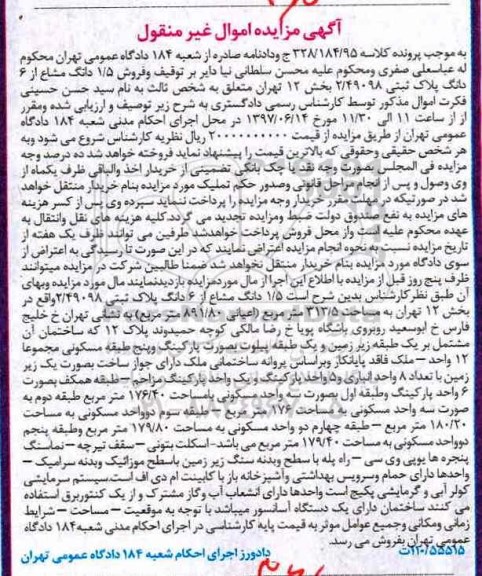 آگهی مزایده اموال غیر منقول
به موجب پرونده کلاسه ۳۲۸/۱۸۴/۹۵ ج ودادنامه صادره از شعبه ۱۸۴ دادگاه عمومی تهران محکوم
له عباسعلی صفری ومحکوم علیه محسن سلطانی نیا دایر بر توقیف وفروش ۱/۵ دانگ مشاع از ۶
دانگ پلاک ثبتی ۲/۴۹۰۹۸ بخش ۱۲ تهران متعلق به شخص ثالث به نام سید حسن حسینی
فکرت اموال مذکور توسط کارشناس رسمی دادگستری به شرح زیر توصیف و ارزیابی شده ومقرر
از از ساعت ۱۱ الی ۱۱/۳۰ مورخ ۱۳۹۷/۰۶/۱۴ در محل اجرای احکام مدنی شعبه ۱۸۴ دادگاه
عمومی تهران از طریق مزایده از قیمت ۲۰۰۰۰۰۰۰۰۰۰ ریال نظریه کارشناس شروع می شود وبه
هر شخص حقیقی وحقوقی که بالاترین قیمت را پیشنهاد نماید فروخته خواهد شد ده درصد وجه
مزایده فی المجلس بصورت وجه نقد یا چک بانکی تضمینی از خریدار اخذ والباقی ظرف یکماه از
وی وصول و پس از انجام مراحل قانونی وصدور حکم تملیک مورد مزایده بنام خریدار منتقل خواهد
شد در صورتیکه در مهلت مقرر خریدار وجه مزایده را پرداخت ننماید سپرده وی پس از کسر هزینه
های مزایده به نفع صندوق دولت ضبط ومزایده تجدید می گردد.کلیه هزینه های نقل وانتقال به
عهده محکوم علیه است واز محل فروش پرداخت خواهدشد طرفین می توانند ظرف یک هفته از
تاریخ مزایده نسبت به نحوه انجام مزایده اعتراض نمایند که در این صورت تا رسیدگی به اعتراض از
سوی دادگاه مورد مزایده بنام خریدار منتقل نخواهد شد ضمنا طالبین شرکت در مزایده میتوانند
ظرف پنج روز قبل از مزایده با اطلاع این اجرا از مال موردمزایده بازدیدنمایند مال مورد مزایده وبهای
آن طبق نظرکارشناس بدین شرح است ۱/۵ دانگ مشاع از ۶ دانگ پلاک ثبتی ۲/۴۹۰۹۸واقع در
بخش ۱۲ تهران به مساحت ۳۱۲/۵ متر مربع (اعیانی ۸۹۱/۸۰ متر مربع) به نشانی تهران خ خلیج
فارس خ ابوسعید روبروی باشگاه پویا خ رضا مالکی کوچه حمیدوند پلاک ۱۲ که ساختمان آن
مشتمل بر یک طبقه زیر زمین و یک طبقه پیلوت بصورت پارکینگ وپنج طبقه مسکونی مجموعا
۱۲ واحد – ملک فاقد پایانکار وبراساس پروانه ساختمانی ملک دارای جواز ساخت بصورت یک زیر
زمین با تعداد ۸ واحد انباری و۵ واحد پارکینگ و یک واحد پارکینگ مزاحم – طبقه همکف بصورت
۶ واحد پارکینگ وطبقه اول بصورت سه واحد مسکونی بامساحت ۱۷۶/۴۰ متر مربع طبقه دوم به
صورت سه واحد مسکونی به مساحت ۱۷۶ متر مربع – طبقه سوم دوواحد مسکونی به مساحت
۱۸۰/۲۰ متر مربع – طبقه چهارم دو واحد مسکونی به مساحت ۱۷۹/۸۰ متر مربع وطبقه پنجم
دوواحد مسکونی به مساحت ۱۷۹/۴۰ متر مربع می باشد- اسکلت بتونی – سقف تیرچه – نماسنگ
پنجره ها یوپی وی سی – راه پله با سطح وبدنه سنگ زیر زمین باسطح موزائیک وبدنه سرامیک –
واحدها دارای حمام وسرویس بهداشتی وآشپزخانه باز با کابینت ام دی اف است.سیستم سرمایشی
کولر آبی و گرمایشی پکیج است واحدها دارای انشعاب آب وگاز مشترک و از یک کنتوربرق استفاده
می کنند ساختمان دارای یک دستگاه آسانسور میباشد با توجه به موقعیت – مساحت – شرایط
زمانی ومکانی وجمیع عوامل موثر به قیمت پایه کارشناسی در اجرای احکام مدنی شعبه ۱۸۴ دادگاه
عمومی تهران بفروش می رسد.
۱۱۰/۵۵۵۱۵ت
دادورز اجرای احکام شعبه ۱۸۴ دادگاه عمومی تهران